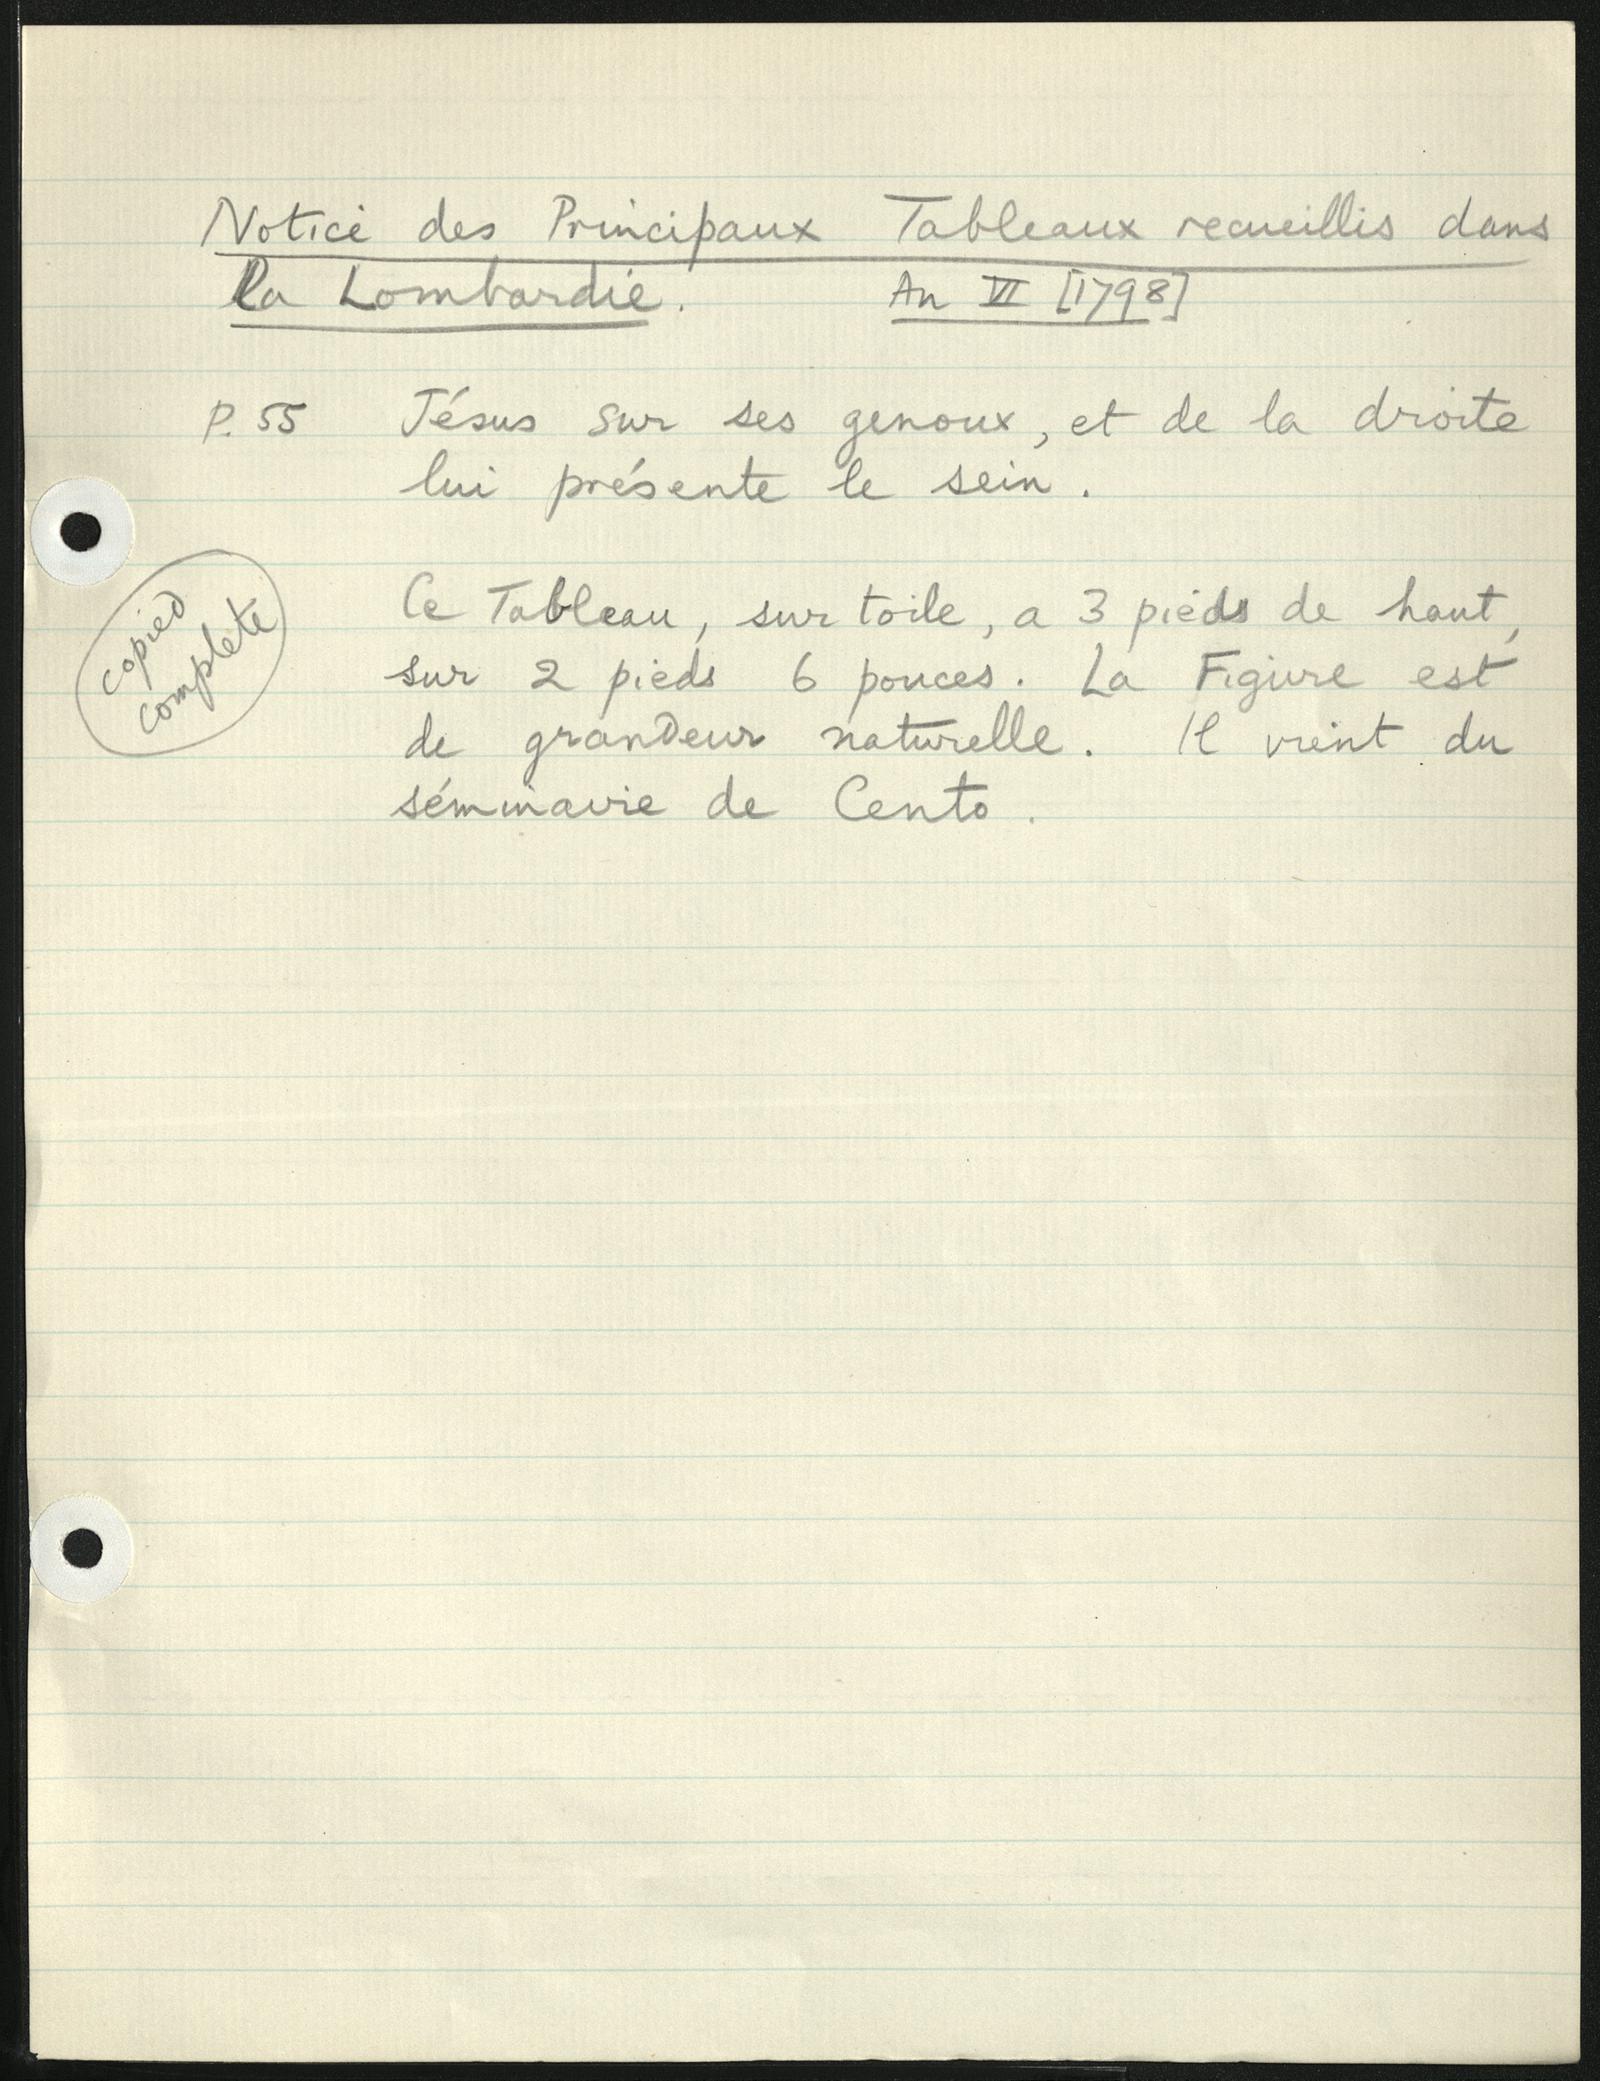 Notice des Principaux Tableaux recueillis dans
la Lombardie. An VI [1798]
P. 55 Jésus sur ses genoux, et de la droite
lui présente le sein.
copied
complete
Ce Tableau, sur toile, a 3 pieds de haut,
sur 2 pieds 6 pouces. La Figure est
de grandeur naturelle. Il vient du
séminaire de Cento.